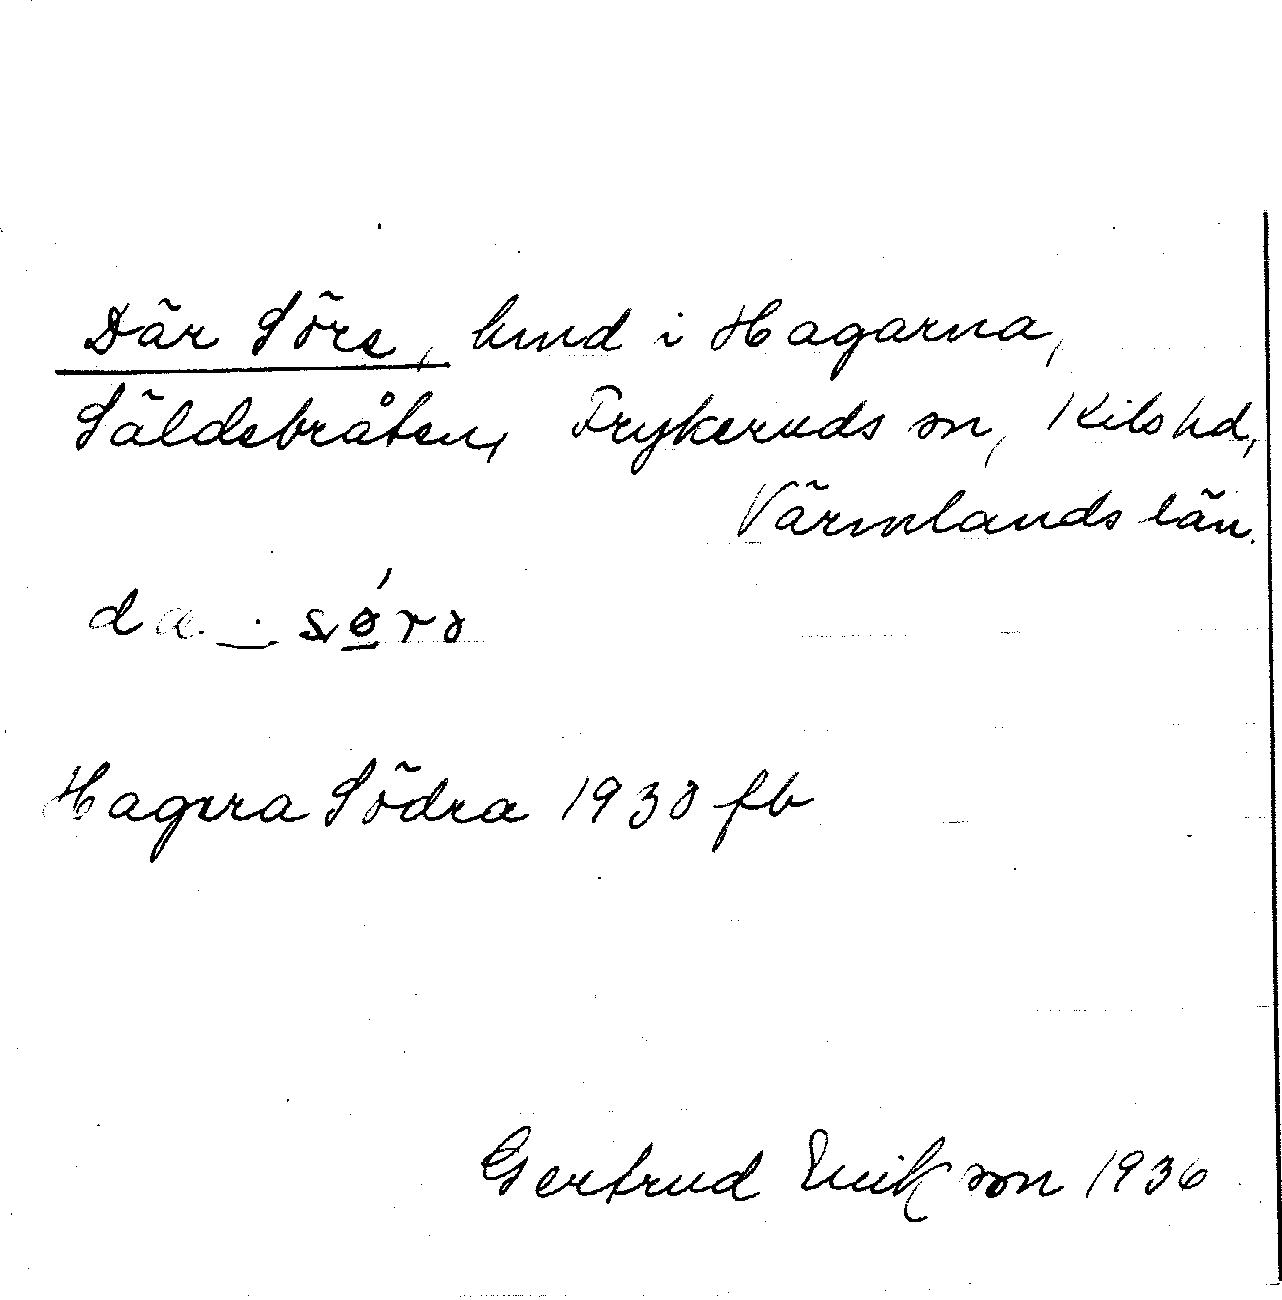 Där Söre, lund i Hagarna,
Säldebråten, Frykeruds sn, Kils hd,
Värmlands län.
da . sørə
Hagera Södra 1930 fb
Gertrud Erikson 1936